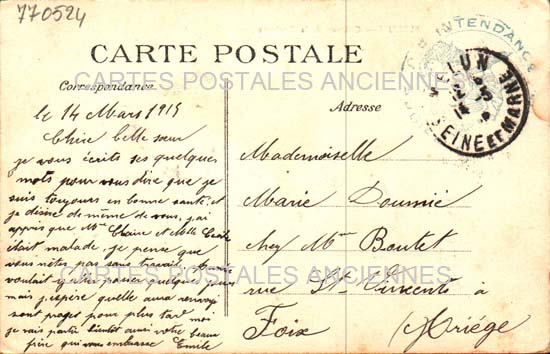 770524
CARTE POSTALE
Correspondance
Adresse
INTENDANCE
MELUN
SEINE ET MARNE
CARTES POSTALES ANCIENNES
le 14 Mars 1915
Chère belle sœur
je vous écrits ses quelques
mots pour vous dire que je
suis toujours en bonne santé et
je désire de même de vous, j'ai
appris que Mme Claire et Melle
était malade, je pense que
vous n'êtes pas sans travail,
voulait y aller passer quelques jours
mais j'espère quelle aura
sont projet pour plus tard moi
je vais partir bientôt aussi votre beau
frère qui vous embrasse Emile
Mademoiselle
Marie Doumié
chez Mme Boutet
rue St Vincent à
Foix
Ariége
CARTES POSTALES ANCIENNES